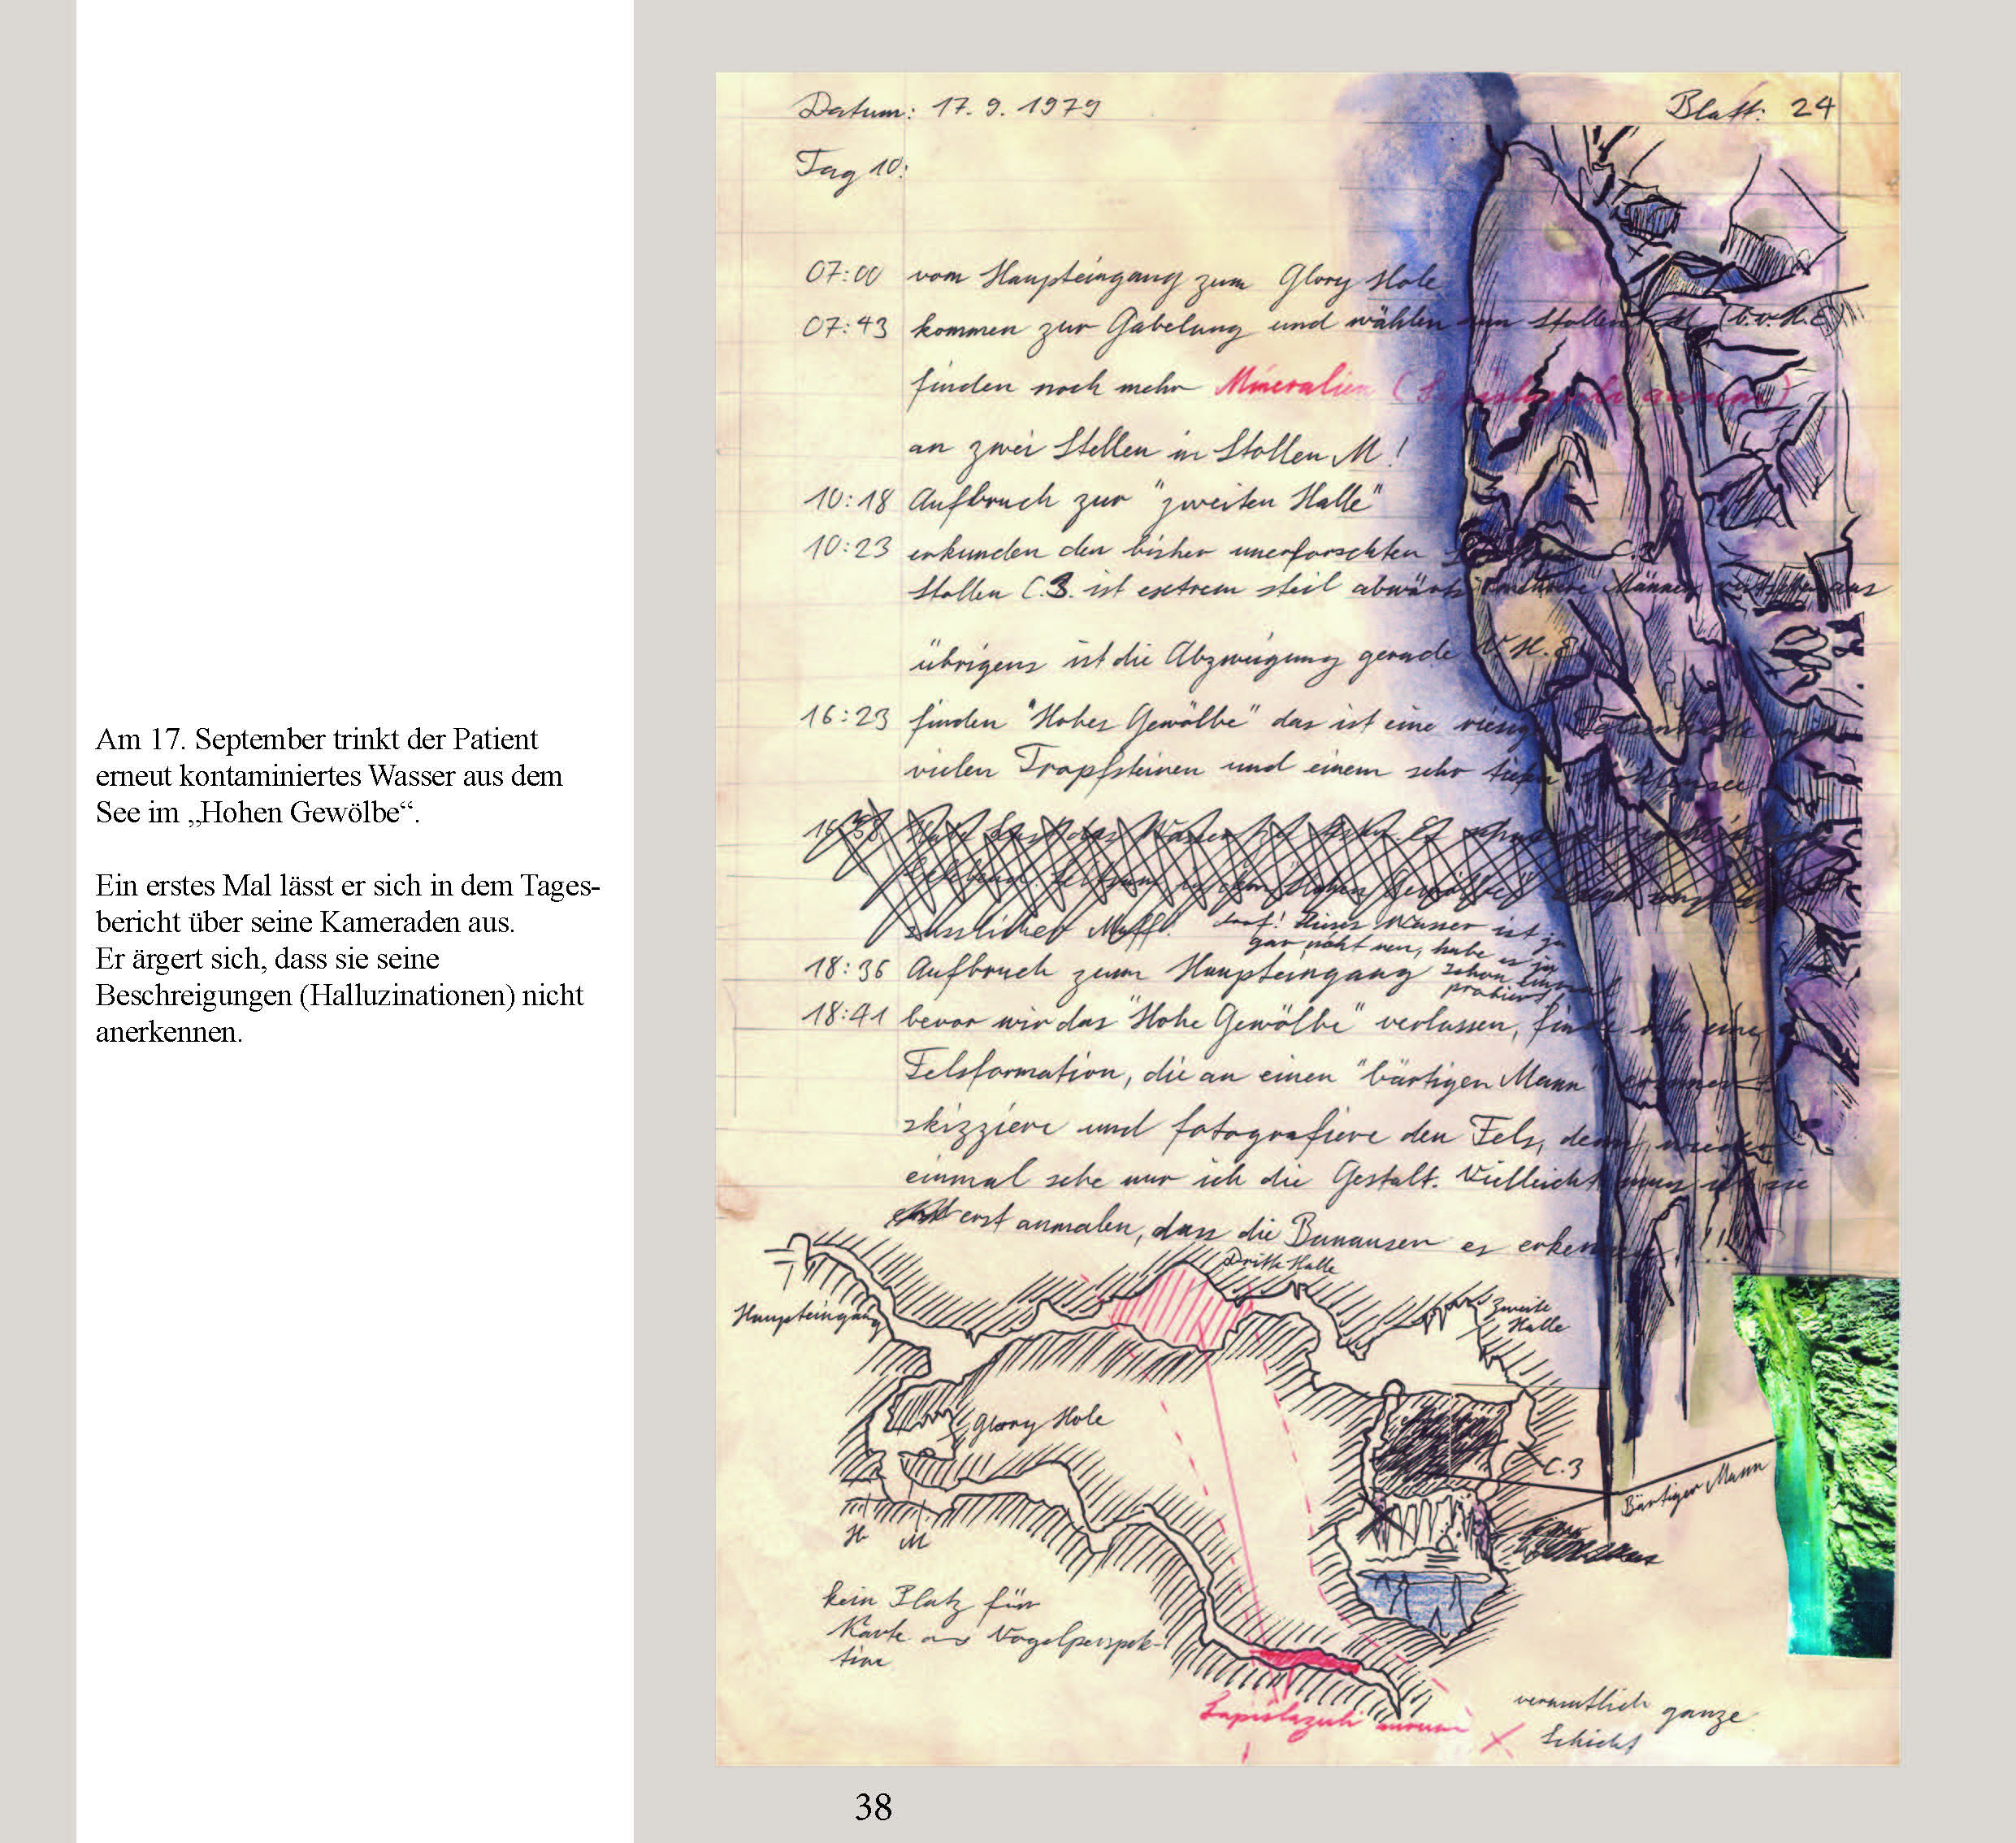 Am 17. September trinkt der Patient
erneut kontaminiertes Wasser aus dem
See im „Hohen Gewölbe“.
Ein erstes Mal lässt er sich in dem Tages-
bericht über seine Kameraden aus.
Er ärgert sich, dass sie seine
Beschreigungen (Halluzinationen) nicht
anerkennen.
Datum: 17. 9. 1979
Blatt: 24
Tag 10:
07:00 vom Haupteingang zum Glory Hole
07:43 kommen zur Gabelung und wählen nun Stollen M (b.v.H.E)
finden noch mehr Mineralien (
an zwei Stellen in Stollen M!
10:18 Aufbruch zur "zweiten Halle"
10:23 erkunden den bisher unerforschten C.3
Stollen C.3. ist extrem steil abwärts, mehrere Männer rutschen aus
übrigens ist die Abzweigung gerade V.H.E
16:23 finden "Hohes Gewölbe" das ist eine riesige Felsenhalle mit
vielen Tropfsteinen und einem sehr tiefen Höhlensee
16:38 das Wasser
süsslicher Muff! doof! dieses Wasser ist ja
gar nicht neu, habe es ja
schon einmal
probiert!
18:36 Aufbruch zum Haupteingang
18:41 bevor wir das "Hohe Gewölbe" verlassen, finde ich eine
Felsformation, die an einen "bärtigen Mann" erinnert
skizziere und fotografiere den Fels, denn wieder
einmal sehe nur ich die Gestalt. Vielleicht muss ich sie
erst anmalen, dass die Banausen es erkennen!!!
Dritte Halle
Zweite
Halle
Haupteingang
Glory Hole
C.3
Bärtiger Mann
H M
kein Platz für
Karte aus Vogelperspek-
tive
Lapislazuli aurum
vermutlich ganze
Schicht
38